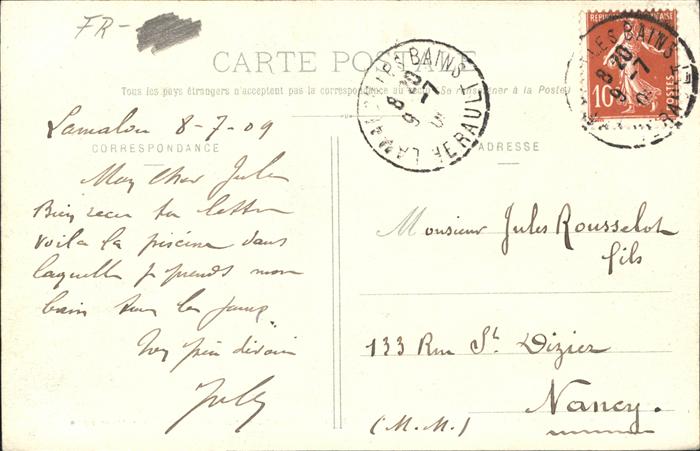 FR-
CARTE POSTALE
Tous les pays étrangers n'acceptent pas la correspondance au recto. Se renseigner à la Poste
CORRESPONDANCE
ADRESSE
Lamalou 8-7-09
Mon Cher Jules
Bien reçu ta lettre
voila la piscine dans
laquelle je prends mon
bain tous les jours
Ton père
Monsieur Jules Rousselot
fils
133 Rue St Dizier
Nancy.
(M.M.)
LAMALOU LES BAINS
HERAULT
8 20
9 -7
RÉPUBLIQUE FRANÇAISE
10
POSTES
LES BAINS
HERAULT
8 20
9 -7